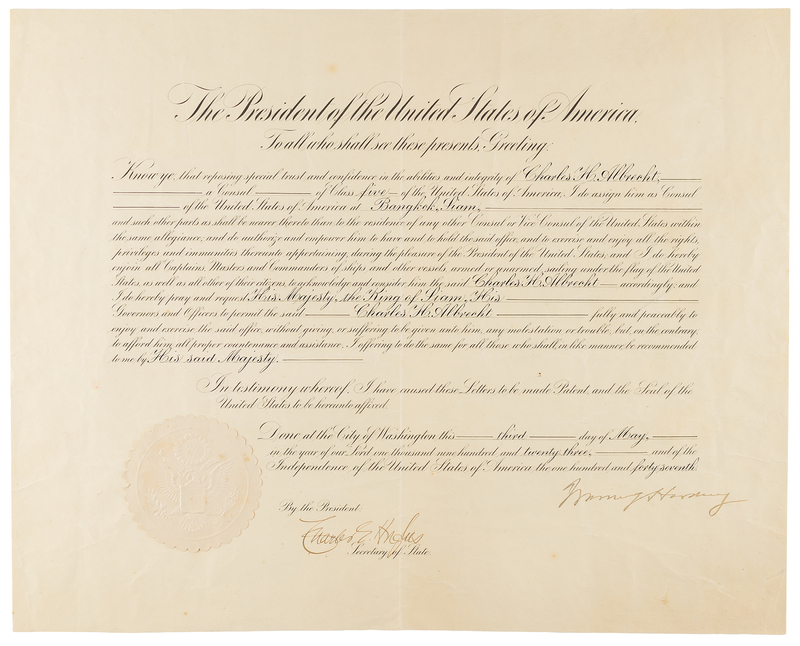 The President of the United States of America.
To all who shall see these presents, Greeting:
Know ye, that reposing special trust and confidence in the abilities and integrity of Charles H. Albrecht,
a Consul of Class five of the United States of America, I do assign him as Consul
of the United States of America at Bangkok, Siam,
and such other parts as shall be nearer thereto than to the residence of any other Consul or Vice Consul of the United States within
the same allegiance, and do authorize and empower him to have and to hold the said office, and to exercise and enjoy all the rights,
privileges and immunities thereunto appertaining, during the pleasure of the President of the United States; and I do hereby
enjoin all Captains, Masters and Commanders of ships and other vessels, armed or unarmed, sailing under the flag of the United
States, as well as all other of their citizens, to acknowledge and consider him the said Charles H. Albrecht accordingly; and
I do hereby pray and request His Majesty, the King of Siam, His
Governors and Officers to permit the said Charles H. Albrecht fully and peaceably to
enjoy and exercise the said office, without giving, or suffering to be given unto him, any molestation or trouble, but, on the contrary,
to afford him all proper countenance and assistance; I offering to do the same for all those who shall, in like manner, be recommended
to me by His said Majesty.
In testimony whereof, I have caused these Letters to be made Patent, and the Seal of the
United States to be hereunto affixed.
Done at the City of Washington this third day of May,
in the year of our Lord one thousand nine hundred and twenty three, and of the
Independence of the United States of America the one hundred and forty-seventh.
Warren G Harding
By the President:
Charles E. Hughes
Secretary of State.